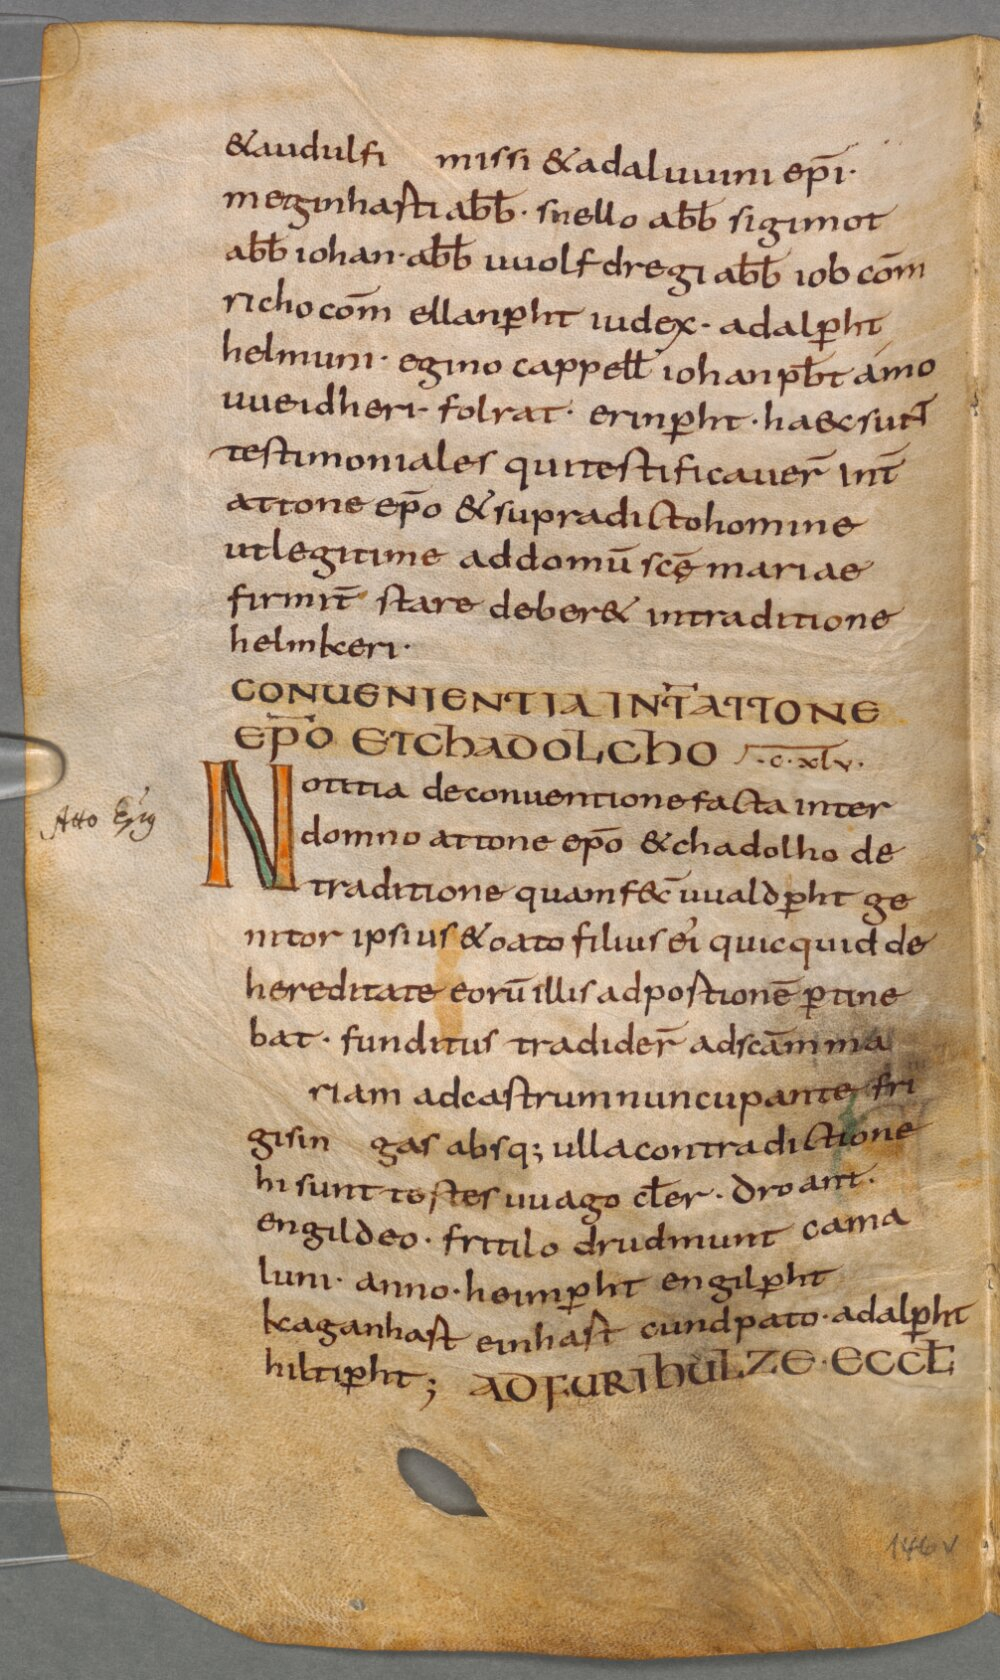 &audulfi missi &adaluuini ep̄i·
meginhasti abb̄· snello abb̄ sigimot
abb̄ iohan· abb̄ uuolfdregi abb̄ iob com̄
richo com̄ ellanp̄ht iudex· adalp̄ht
helmuni· egino cappell̄ iohan pb̄t ámo
uueidheri· folrat· erinp̄ht· haec sut̄
testimoniales qui testificauer̄ int̄
attone ep̄o & supradicto homine
ut legitime ad domū scę̄ mariae
firmit̄ stare deber& in traditione
helmkeri·
CONUENIENTIA INT̄ ATTONE
EP̄O ET CHADOLCHO ·c·xlv·
Notitia de conuentione facta inter
domno attone ep̄o & chadolho de
traditione quam fec̄ uualdp̄ht ge
nitor ipsius & oato filius ei quicquid de
hereditate eorū illis ad postionē p̄tine
bat· funditus tradider̄ ad scām ma
riam ad castrum nuncupante fri
gisin gas absq; ulla contradictione
hi sunt testes uuago cl̄er· droant·
engildeo· fritilo drudmunt cama
luni· anno· heimp̄ht engilp̄ht
kaganhast einhast cundpato· adalp̄ht
hiltip̄ht; AD FURIHULZE· ECCL̄
Atto
146v